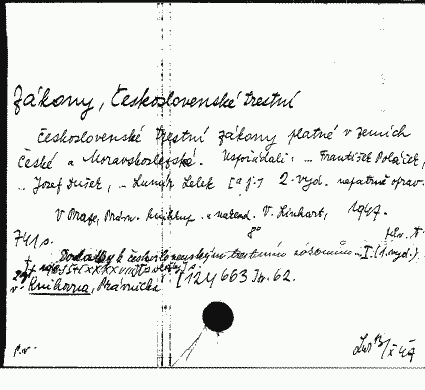 Zákony, Československé trestní
Československé trestní zákony platné v zemích
České a Moravskoslezské. Uspořádali: .. František Poláček,
.. Josef Dušek, .. Lumír Lelek [a j.] 2. vyd. nepatrně oprav.
V Praze, Práv. knihkup. a naklad. V. Linhart, 1947.
8°
741 s.
Dodatky k československým trestním zákonům .. I (1. vyd.).
[124 663 Itr. 62.
v Knihovna, Právnická